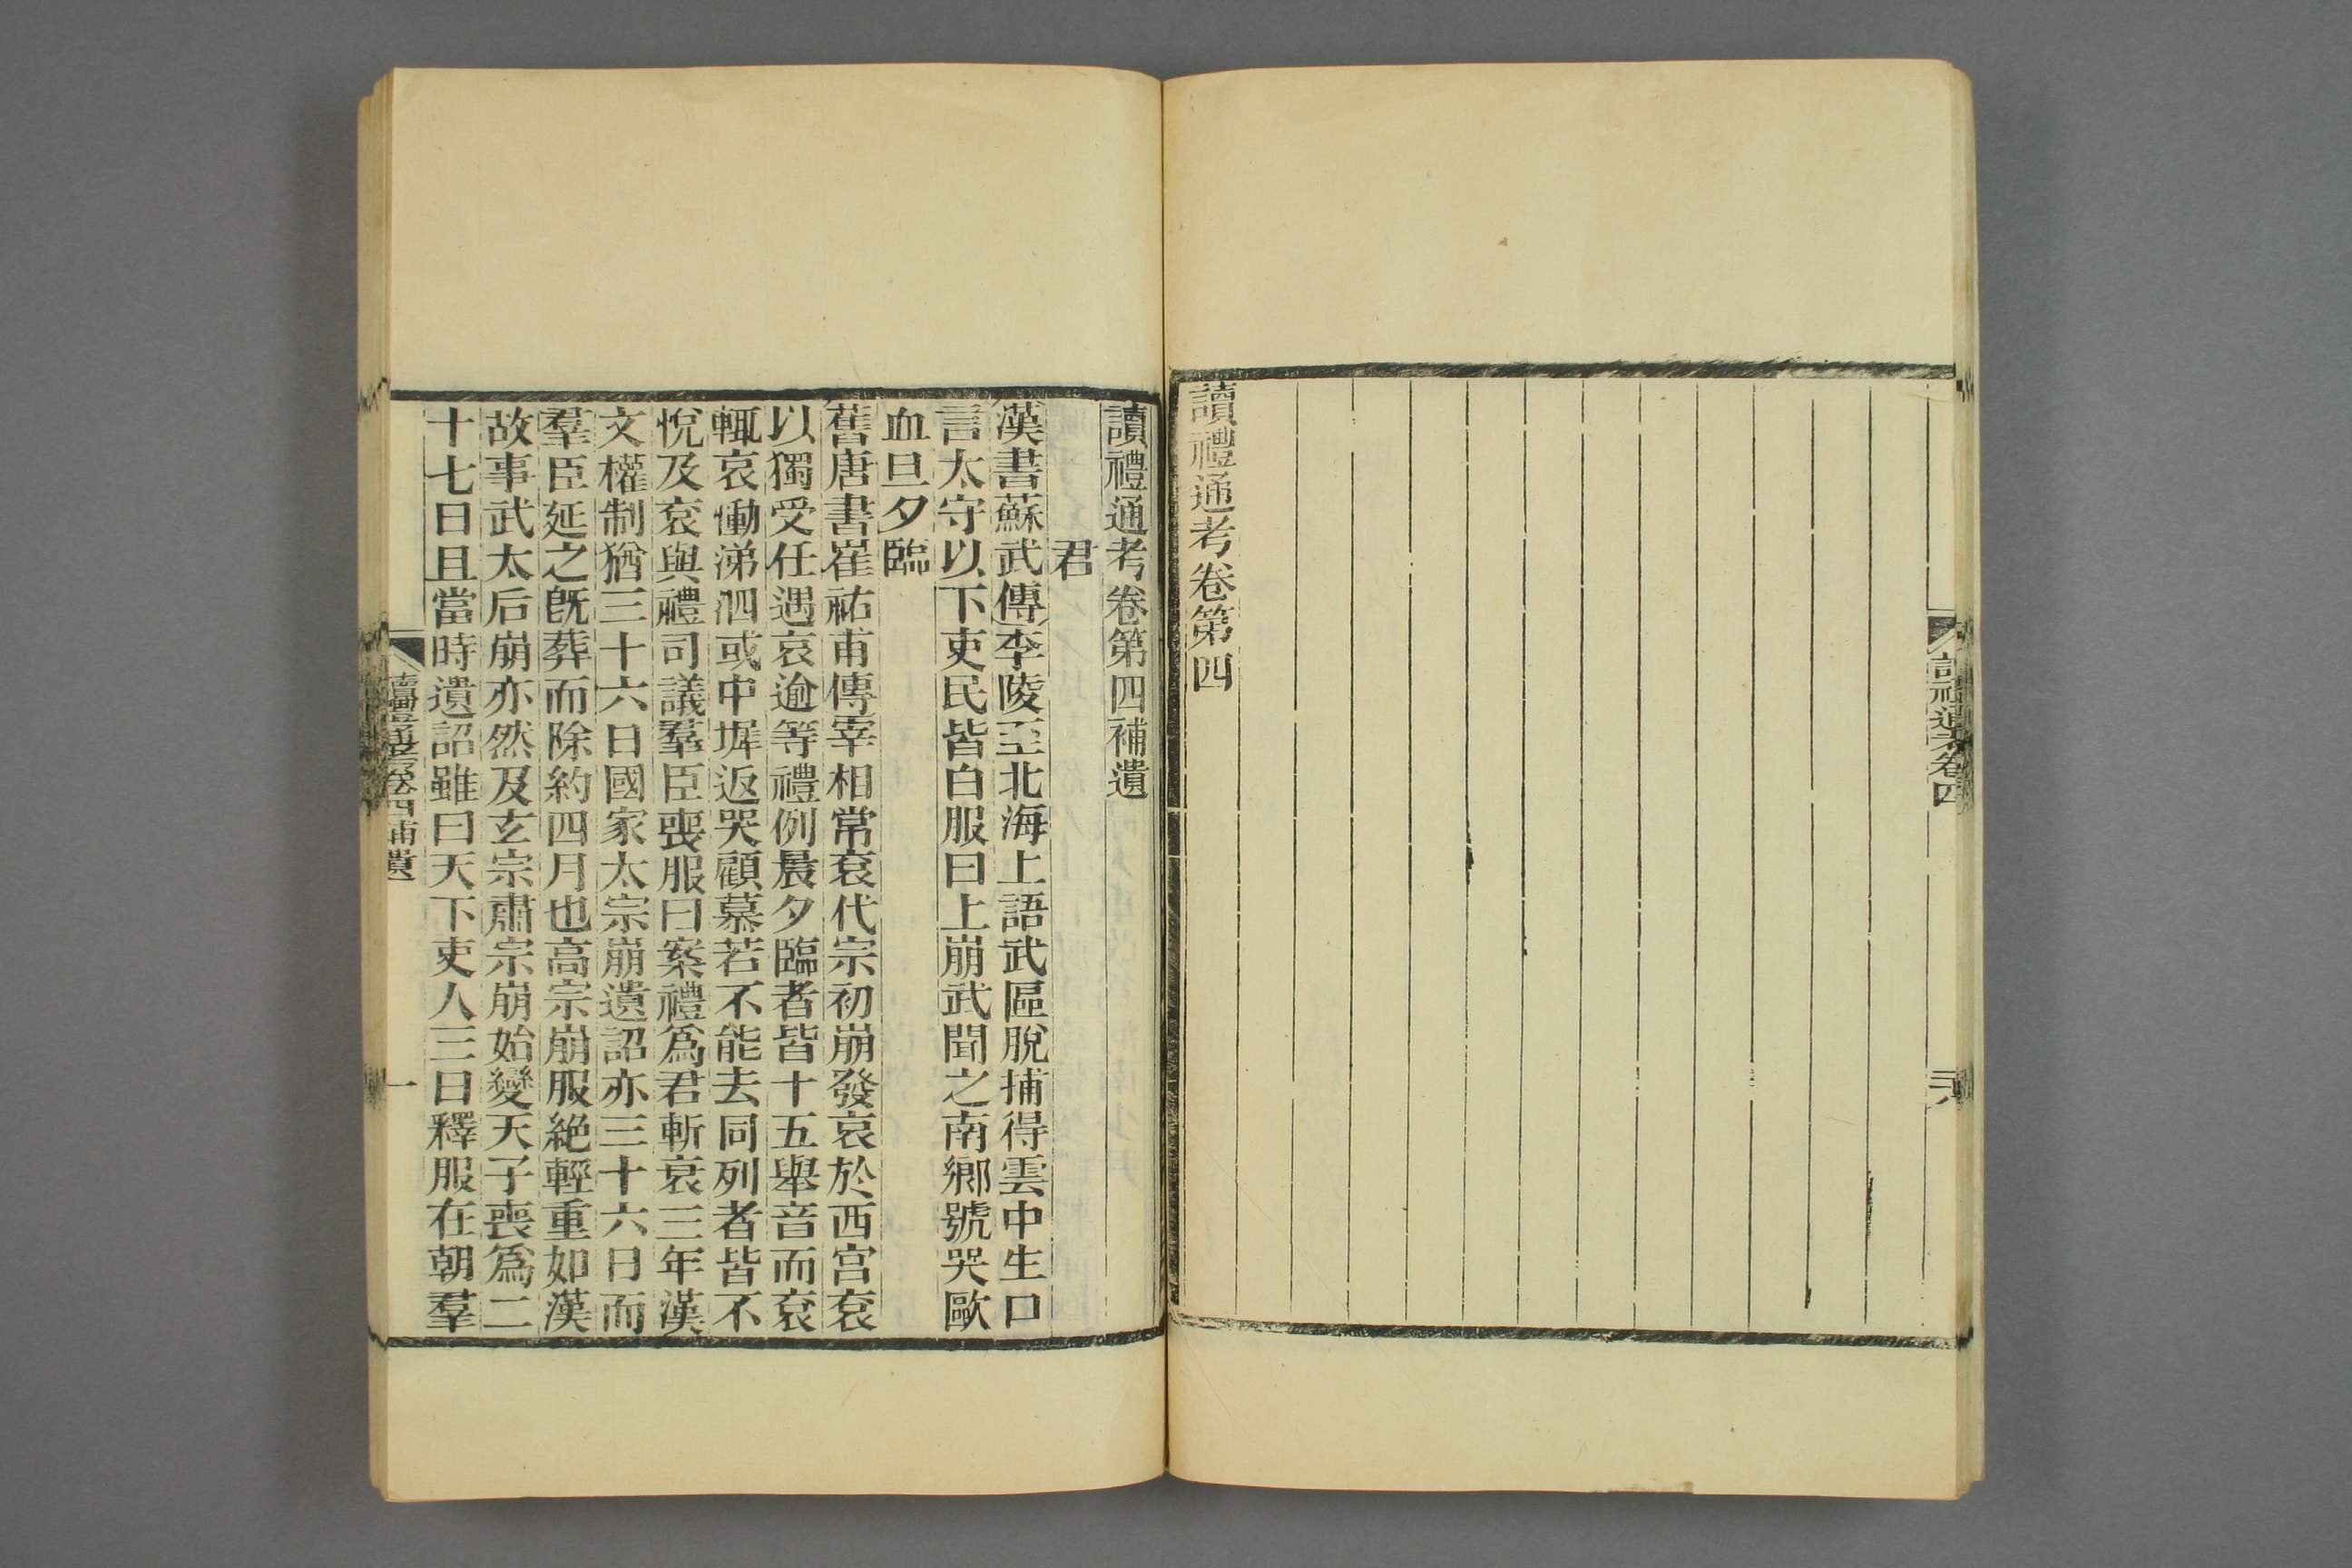 讀禮通考卷四
讀禮通考卷第四
讀禮通考卷第四補遺
君
漢書蘇武傳李陵至北海上語武區脫捕得雲中生口
言太守以下吏民皆白服曰上崩武聞之南鄉號哭歐
血旦夕臨
舊唐書崔祐甫傳宰相常袞代宗初崩發哀於西宮袞
以獨受任遇哀逾等禮例晨夕臨者皆十五舉音而袞
輒哀慟涕泗或中墀返哭顧慕若不能去同列者皆不
悅及袞與禮司議羣臣喪服曰案禮爲君斬衰三年漢
文權制猶三十六日國家太宗崩遺詔亦三十六日而
羣臣延之旣葬而除約四月也高宗崩服絶輕重如漢
故事武太后崩亦然及玄宗肅宗崩始變天子喪爲二
十七日且當時遺詔雖曰天下吏人三日釋服在朝羣
讀禮通考卷四補遺
一